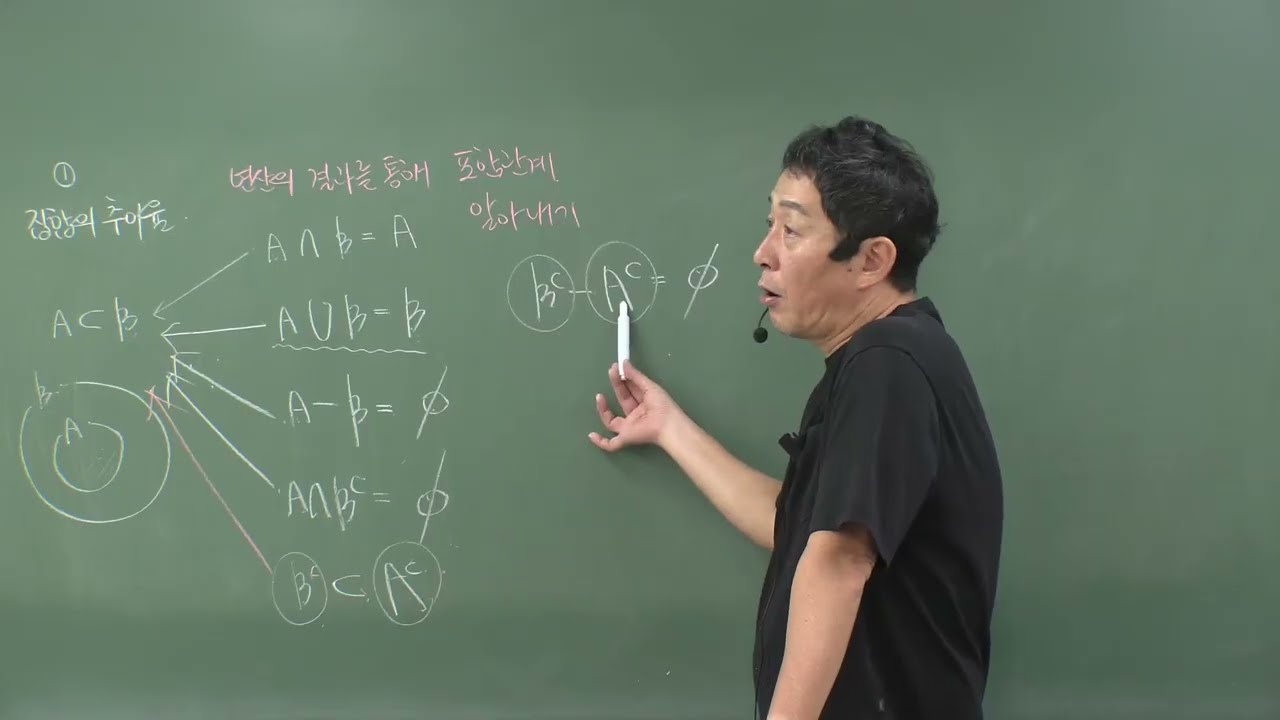 ①
집합의 추이율
연산의 결과를 통해 포함관계
알아내기
A ∩ B = A
A ⊂ B
A ∪ B = B
A − B = ∅
A ∩ Bᶜ = ∅
Bᶜ ⊂ Aᶜ
B
A
Bᶜ − Aᶜ = ∅